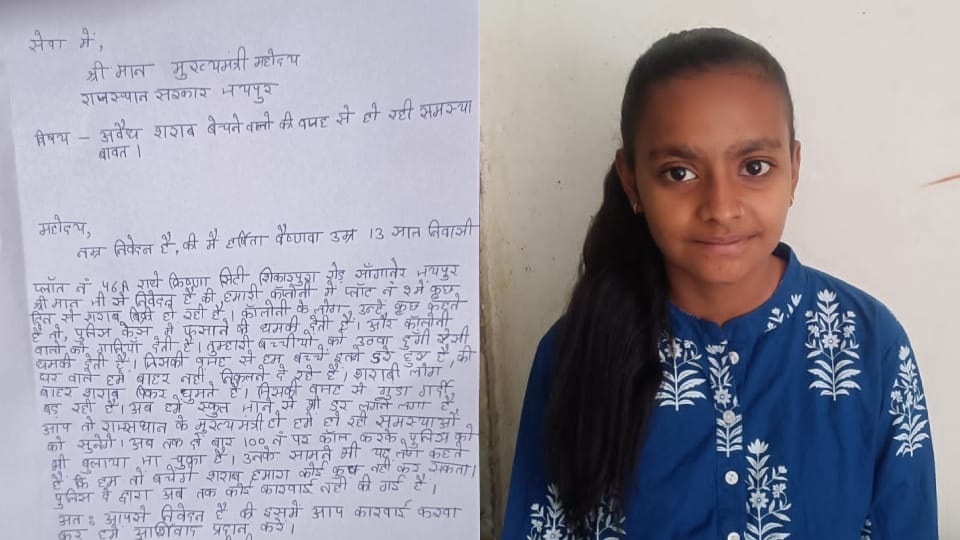 सेवा में,
श्री मान मुख्यमंत्री महोदय
राजस्थान सरकार जयपुर
विषय - अवैध शराब बेचने वालो की वजह से हो रही समस्या
बावत।
महोदय,
नम्र निवेदन है, की मै हर्षिता वैष्णवा उम्र 13 साल निवासी
प्लॉत नं 46A राधे क्रिष्णा सिटी शिकारपुरा रोड़ साँगानेर जयपुर
श्री मान जी से निवेदन है की हमारी कॉलोनी में प्लॉट नं में कुछ
दिन से शराब बिक्री हो रही है। कॉलोनी के लोग उन्हें कुछ कहते
है तो, पुलिस केस में फसाने की धमकी देती है। और कॉलोनी
वालो को गालियाँ देती है। तुम्हारी बच्चीयो को उठवा दुगी ऐसी
धमकी देती है। जिसकी वजह से हम बच्चे इतने डरे हुए है, की
घर वाले हमे बाहर नही, निकलने दे रहे है। शराबी लोग
बाहर शराब पिकर घुमते है। जिसकी वजह से गुंडा गर्दी
बड़ रही है। अब हमे स्कुल जाने से भी डर लगने लगा है
आप तो राजस्थान के मुख्यमंत्री हो हमे हो रही समस्याओ
को सुनेगे। अब तक बार 100 नं पर कॉल करके पुलिस को
भी बुलाया जा चुका है। उनके सामने भी यह लोग कहते
है कि हम तो बेचेगे शराब हमारा कोई कुछ नही कर सकता।
पुलिस के द्वारा अब तक कोई कारवाई नही की गई है।
अतः आपसे निवेदन है की इसमे आप कारवाई करवा
कर हमे आर्शिवाद प्रदान करे।